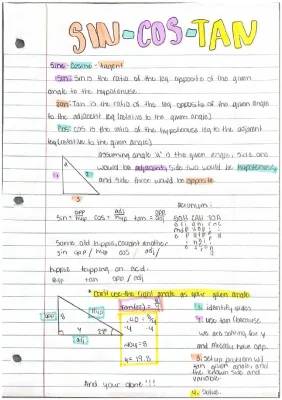 SIN-COS-TAN
Sine - Cosine - tagent
Sin: Sin is the ratio of the leg opposite of the given
angle to the hypotenuse.
Tan: Tan is the ratio of the leg opposite of the given angle
to the adjacent leg (relative to the given angle)
Cos: cos is the ratio of the hypotenuse leg to the adjacent
leg (relative to the given angle)
assuming angle "a" is the given angle, side one
would be adjacent, side two would be hypotenuse
and side three would be opposite
a
1
2
3
acronym:
sin = opp/hyp cos = adj/hyp tan = opp/adj
soh cah toa
Some old hippie, caught another
sin opp/hyp cos / adj/
hippie tripping on acid.
hyp tan opp/adj
* Don't use the right angle as your given angle
opp
8
hyp
y
adj
8/y
.4y = 8
y = 19.8
1. identify sides
2. use tan because
we are solving for y
and already have opp.
3. Set up problem w/
given angle, and
the known side and
variable.
4. Solve.
And your done!!!